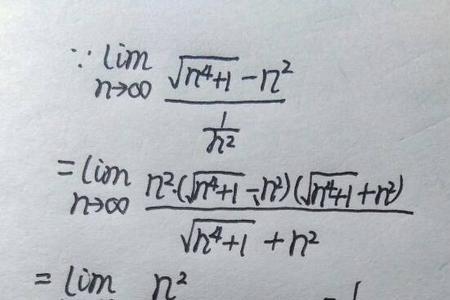 ∵ lim n→∞ (√(n⁴+1) - n²) / (1/n²)
= lim n→∞ n²·(√(n⁴+1) - n²)(√(n⁴+1) + n²) / (√(n⁴+1) + n²)
= lim n² = 1